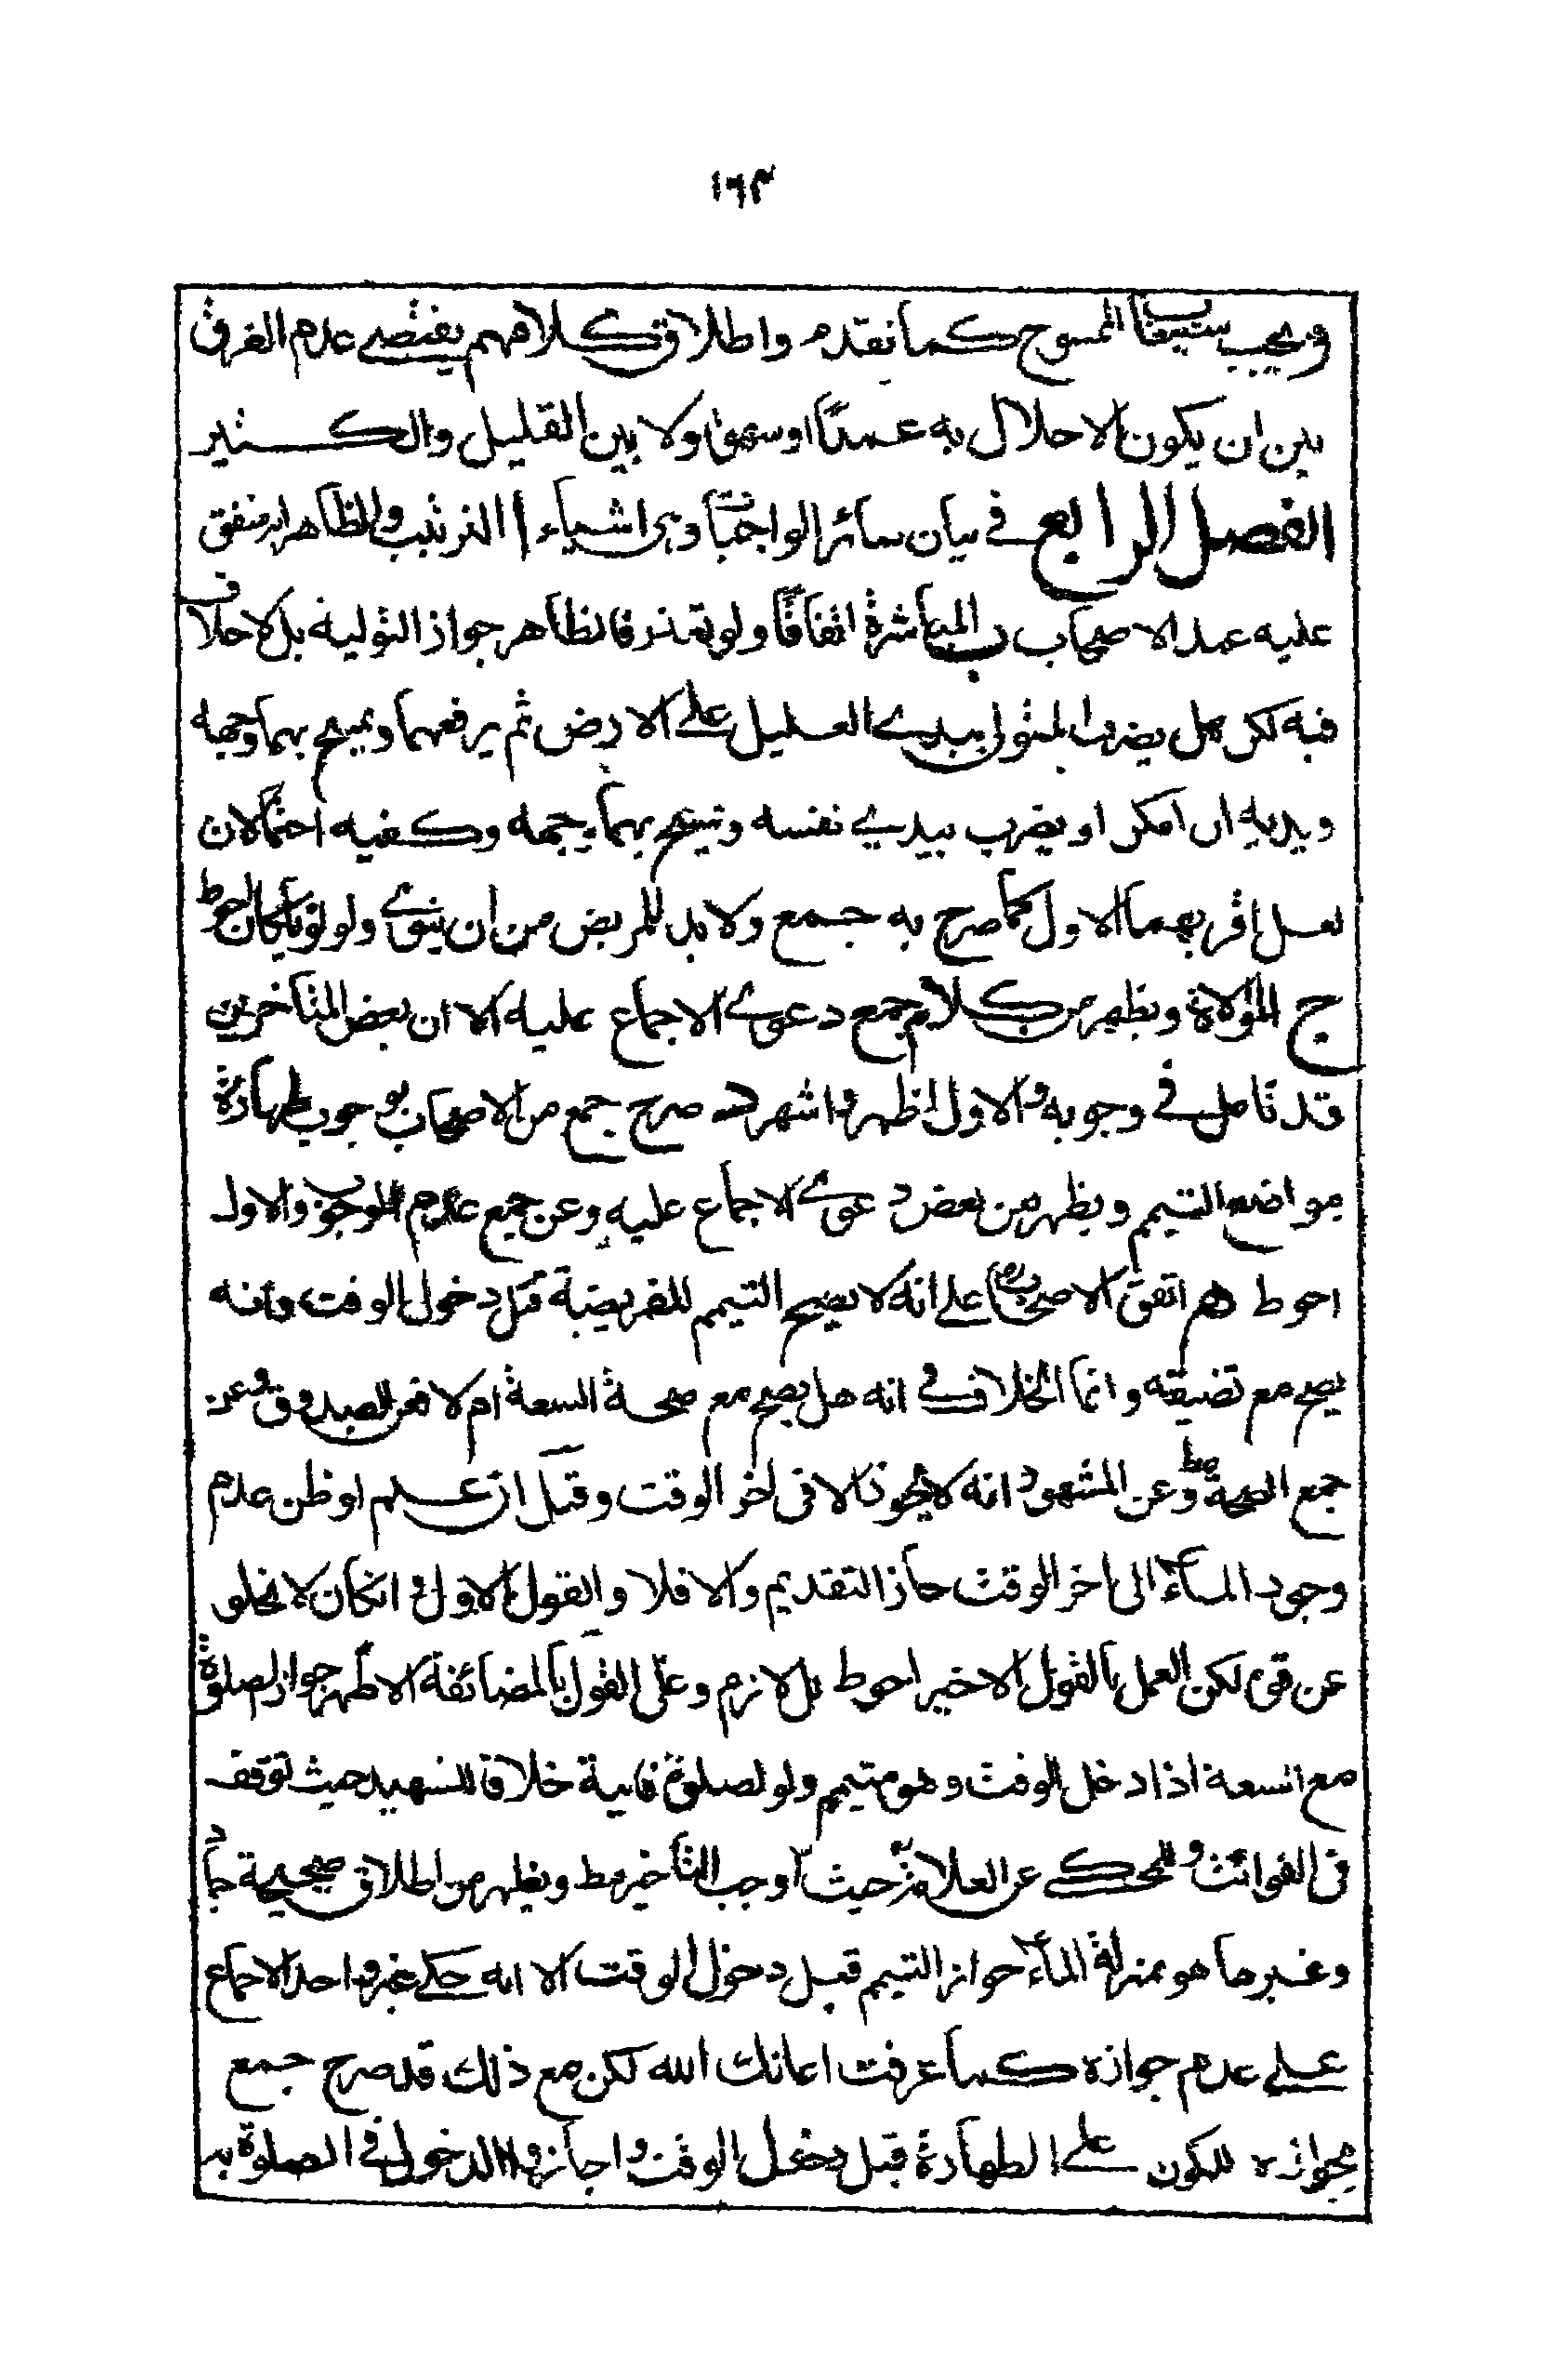 ١٦٣
ويجب استيعاب الممسوح كما تقدم واطلاق كلامهم يقتضي عدم الفرق
بين ان يكون الاخلال به عمدًا او سهوا ولا بين القليل والكثير
الفصل الرابع في بيان سائر الواجبات وهي اشياء ا الترتيب والظاهر انه متفق
عليه عند الاصحاب ب المباشرة اتفاقًا ولو تعذر فالظاهر جواز التولية بل لا خلاف
فيه لكن هل يضرب المتولي بيدي العليل على الارض ثم يرفعهما ويمسح بهما وجهه
ويديه ان امكن او يضرب بيدي نفسه ويمسح بهما وجهه وكفيه احتمالان
لعل اقربهما الاول كما صرح به جمع ولا بد للمريض من ان ينوي ولو نويا كان احوط
ج الموالاة ويظهر من كلام جمع دعوى الاجماع عليه الا ان بعض المتاخرين
قد تامل في وجوبه والاول اظهر واشهر د صرح جمع من الاصحاب بوجوب طهارة
مواضع التيمم ويظهر من بعض دعوى الاجماع عليه وعن جمع عدم الوجوب والاول
احوط هـ اتفق الاصحاب على انه لا يصح التيمم للفريضة قبل دخول الوقت وانه
يصح مع تضيقه وانما الخلاف في انه هل يصح مع صحة السعة ام لا فعن الصدوق وعن
جمع الصحة مط وعن المشهور انه لا يجوز الا في اخر الوقت وقيل ان علم او ظن عدم
وجود الماء الى اخر الوقت جاز التقديم والا فلا والقول الاول وانكان لا يخلو
عن قوة لكن العمل بالقول الاخير احوط بل لازم وعلى القول بالمضائقة الاظهر جواز الصلوة
مع السعة اذا دخل الوقت وهو متيمم ولو لصلوة فايتة خلافا للشهيد حيث توقف
في الفوائت وللمحكي عن العلامة حيث اوجب التاخير مط ويظهر من اطلاق صحيحة حماد
وغير ما هو بمنزلة الماء جواز التيمم قبل دخول الوقت الا انه حكى غير واحد الاجماع
على عدم جوازه كما عرفت اعانك الله لكن مع ذلك قد صرح جمع
بجوازه للكون على الطهارة قبل دخول الوقت واجازوا الدخول في الصلوة به